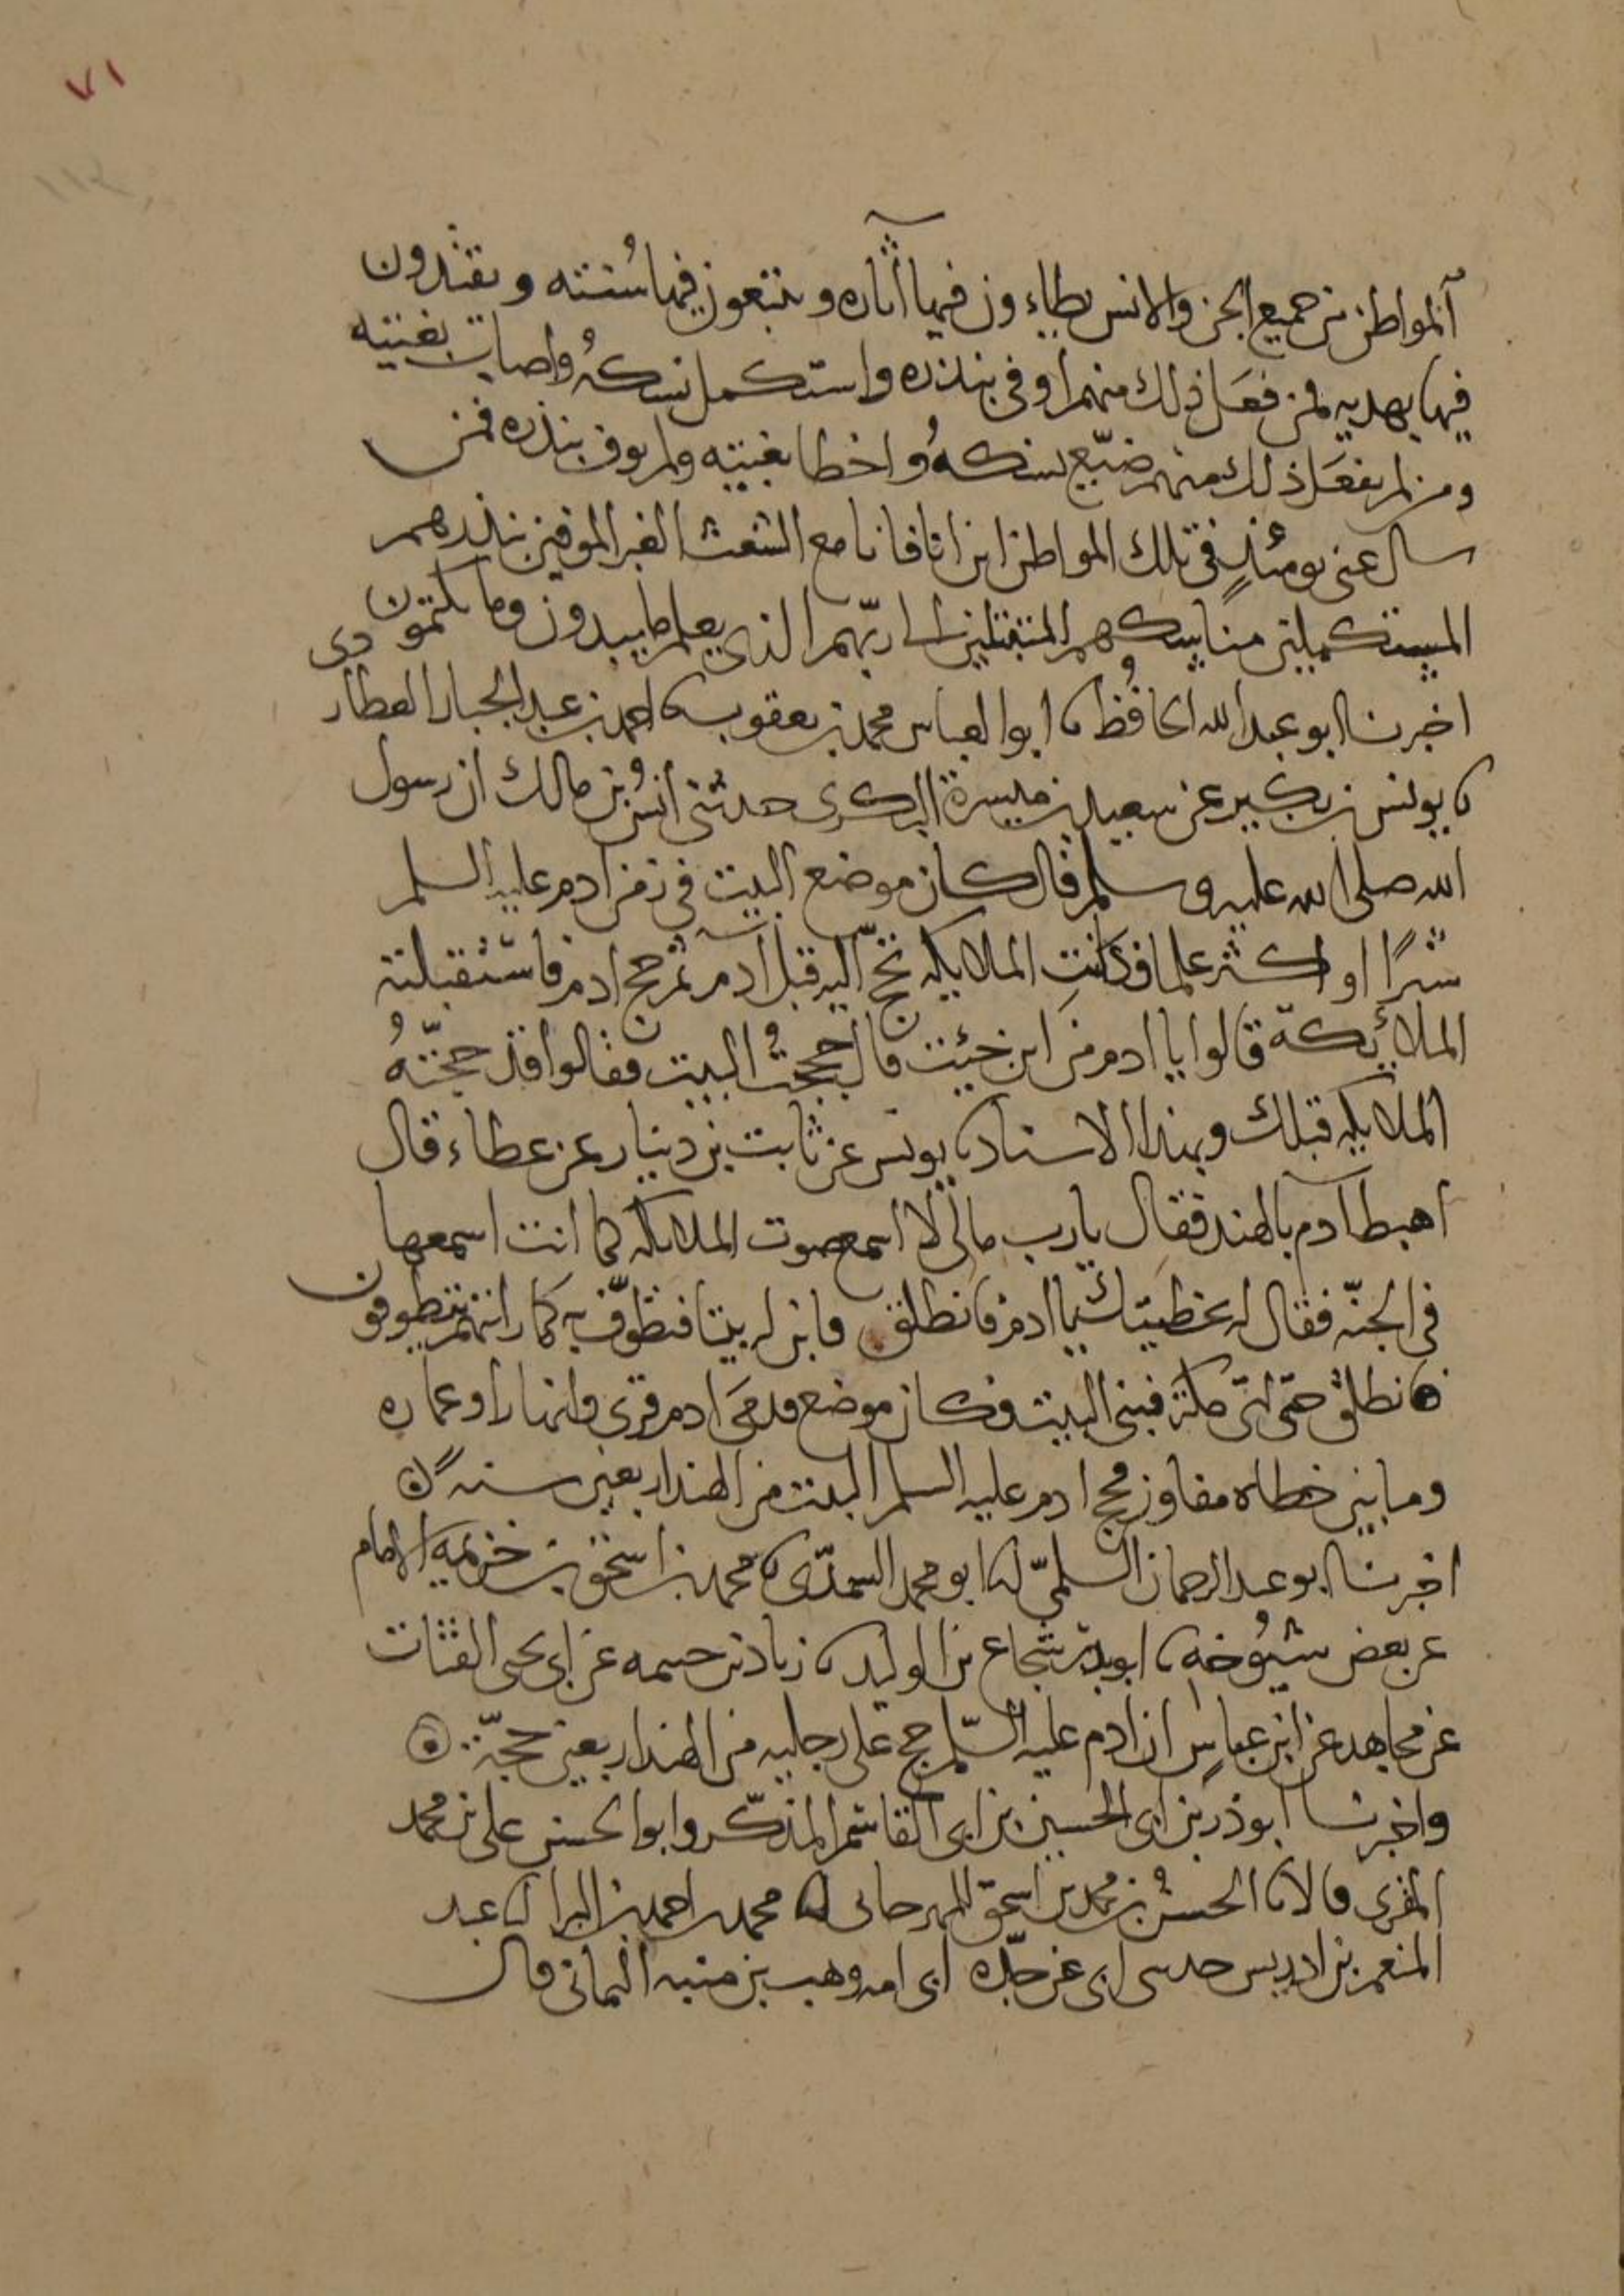 ٧١
١١٢
المواطن من جميع الجن والانس يطاءون فيها آثاره ويتبعون فيها سنته ويقتدون
فيها بهديه فمن فعل ذلك منهم اوفى بنذره واستكمل نسكه واصاب بغيته
ومن لم يفعل ذلك منهم ضيّع نسكه واخطا بغيته ولم يوف بنذره فمن
سال عنى يومئذٍ في تلك المواطن اين انا فانا مع الشعث الغبر الموفين بنذرهم
المستكملين مناسكهم المتبتلين الى ربّهم الذي يعلم ما يبدون وما يكتمون
اخبرنا ابو عبد الله الحافظ ابو العباس محمد بن يعقوب احمد بن عبد الجبار العطاردى
يونس بن بكير عن سعيد بن ميسرة البكرى حدثني انسُ بن مالك ان رسول
الله صلى الله عليه وسلم قال كان موضع البيت في زمن ادم عليه السلم
شبرًا او اكثر علما فكانتِ الملايكه تحجّ اليه قبل آدم ثم حج ادم فاستقبلته
الملائكة قالوا يا ادم من اين جيئت قال حججتُ البيت فقالوا قد حجّتهُ
الملايكه قبلك وبهذا الاسناد يونس عن ثابت بن دينار عن عطاء قال
اهبط آدم بالهند فقال يارب مالى لا اسمع صوت الملايكه كما انت اسمعها
في الجنّه فقال له بخطيتك يا ادم فانطلق فابن له بيتا فتطوّف به كما رايتهم يتطوفون
فانطلق حتى اتى مكة فبنى البيت فكان موضع قدمى ادم قرى وانهارا وعماره
وما بين خطاه مفاوز فحج ادم عليه السلم البيت من الهند اربعين سنه
اخبرنا ابو عبد الرحمان السلمىّ ابو محمد السمدّى محمد بن اسحق بن خزيمه الامام
عن بعض شيُوخه ابو بدر شجاع بن الوليد زياد بن حسمه عن ابى يحيى القتات
عن مجاهد عن ابن عباسٍ ان ادم عليه السّلم حج على رجليه من الهند اربعين حجّة
واخبرنا ابو ذر بن ابى الحسين بن ابى القاسم المذكّر وابو الحسن على بن محمد
المقرى قالا الحسن بن محمد بن اسحق المهرجانى محمد بن احمد بن البرا عبد
المنعم بن ادريس حدثنى ابى عن جدّه ابى امه وهب بن منبه اليمانى قال